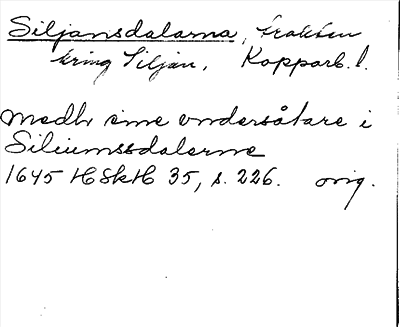 Siljansdalarna, trakten
kring Siljan, Kopparb. l.
Medh sine vndersåtare i
Siliumssdalerne
1645 HSkH 35, s. 226. orig.